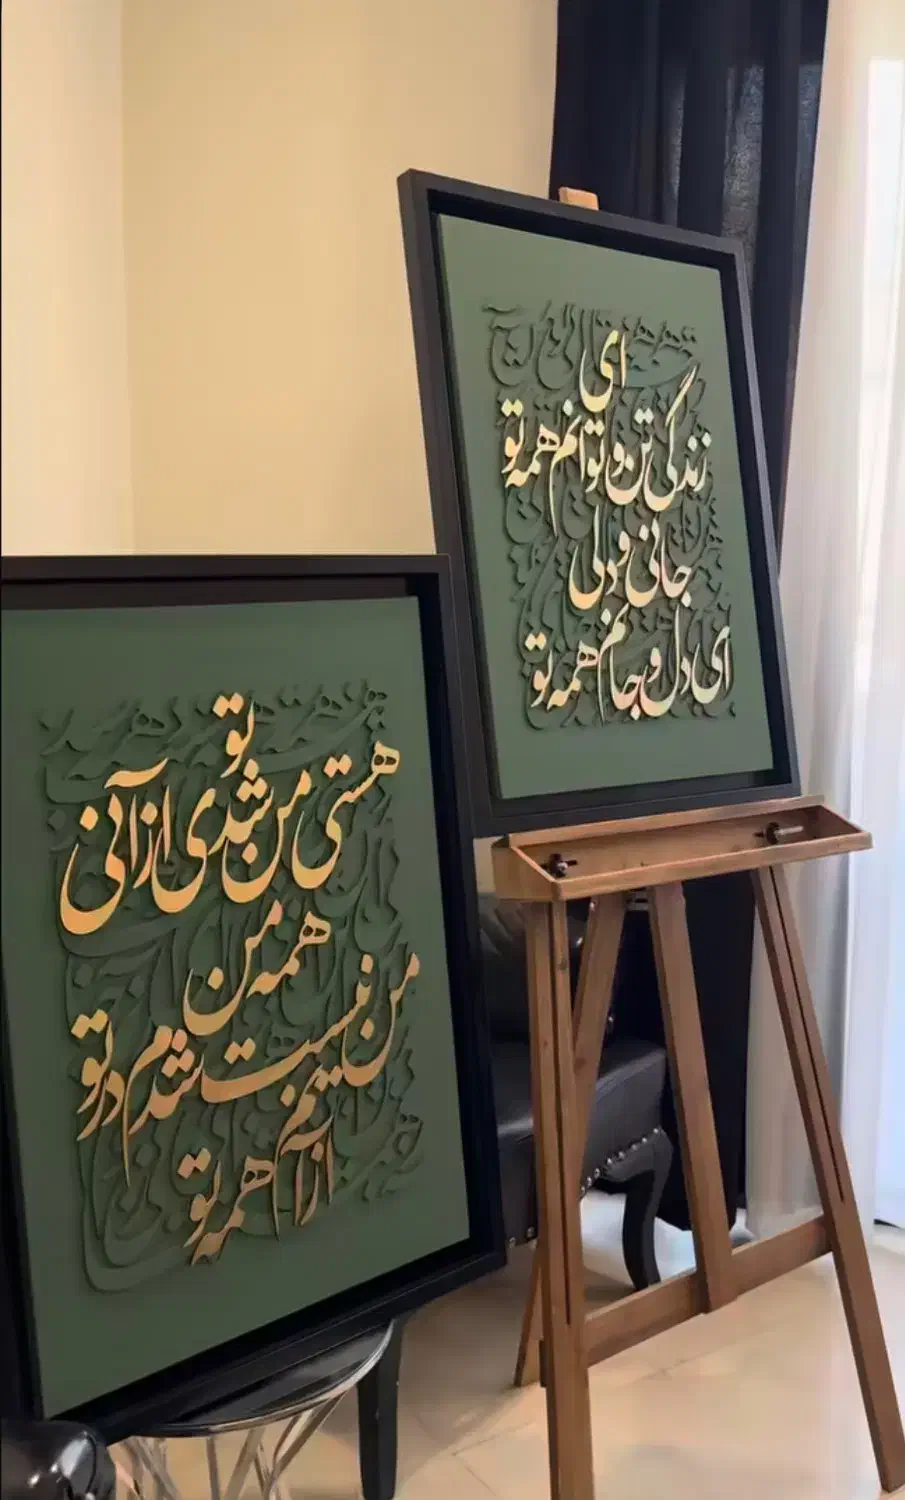 ای
زندگی تن و توانم همه تو
جانی و دلی
ای دل و جانم همه تو
تو
هستی من شدی از آنی
همه من
من نیست شدم در تو
از آنم همه تو